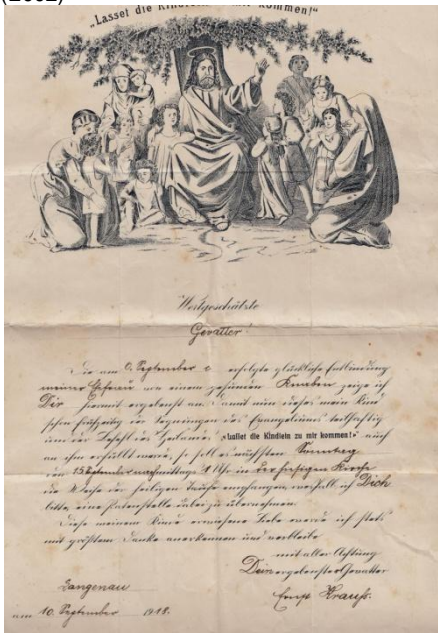 (2002)
„Lasset die Kindlein zu mir kommen!"
Wertgeschätzte
Gevatter!
Die am 6. September c erfolgte glückliche Entbindung
meiner Ehefrau von einem gesunden Knaben zeige ich
Dir hiermit ergebenst an. Damit nun dieses mein Kind
schon frühzeitig der Segnungen des Evangeliums teilhaftig
und der Befehl des Heilandes: „Lasset die Kindlein zu mir kommen!" auch
an ihm erfüllt werde, so soll es nächsten Sonntag
den 15 September nachmittags 1 Uhr in der hiesigen Kirche
die Weihe der heiligen Taufe empfangen, weshalb ich Dich
bitte, eine Patenstelle dabei zu übernehmen.
Diese meinem Kinde erwiesene Liebe werde ich stets
mit größtem Danke anerkennen und verbleibe
mit aller Achtung
Dein ergebenster Gevatter
Krauß.
Langenau
am 10. September 1918.